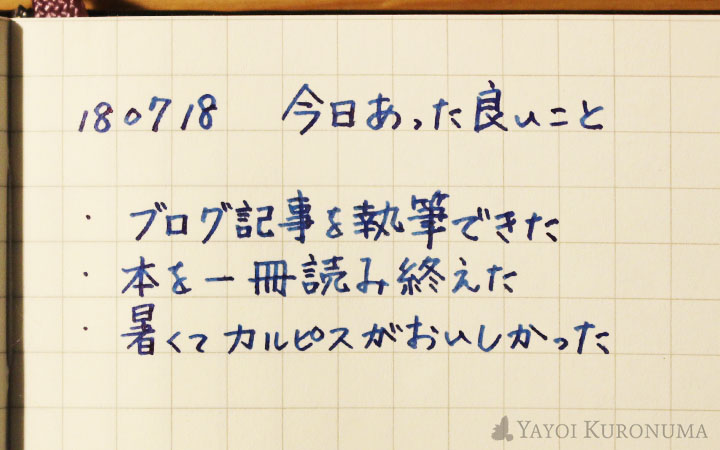 180718 今日あった良いこと
・ブログ記事を執筆できた
・本を一冊読み終えた
・暑くてカルピスがおいしかった
YAYOI KURONUMA